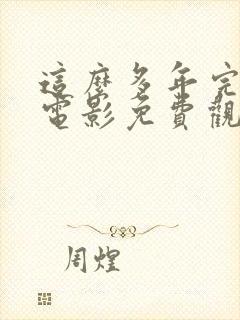 這麼多年完
電影免費觀
周煌